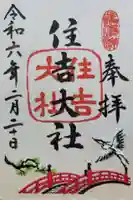 奉拝
住吉大社
住吉
大社
令和六年一月二十日